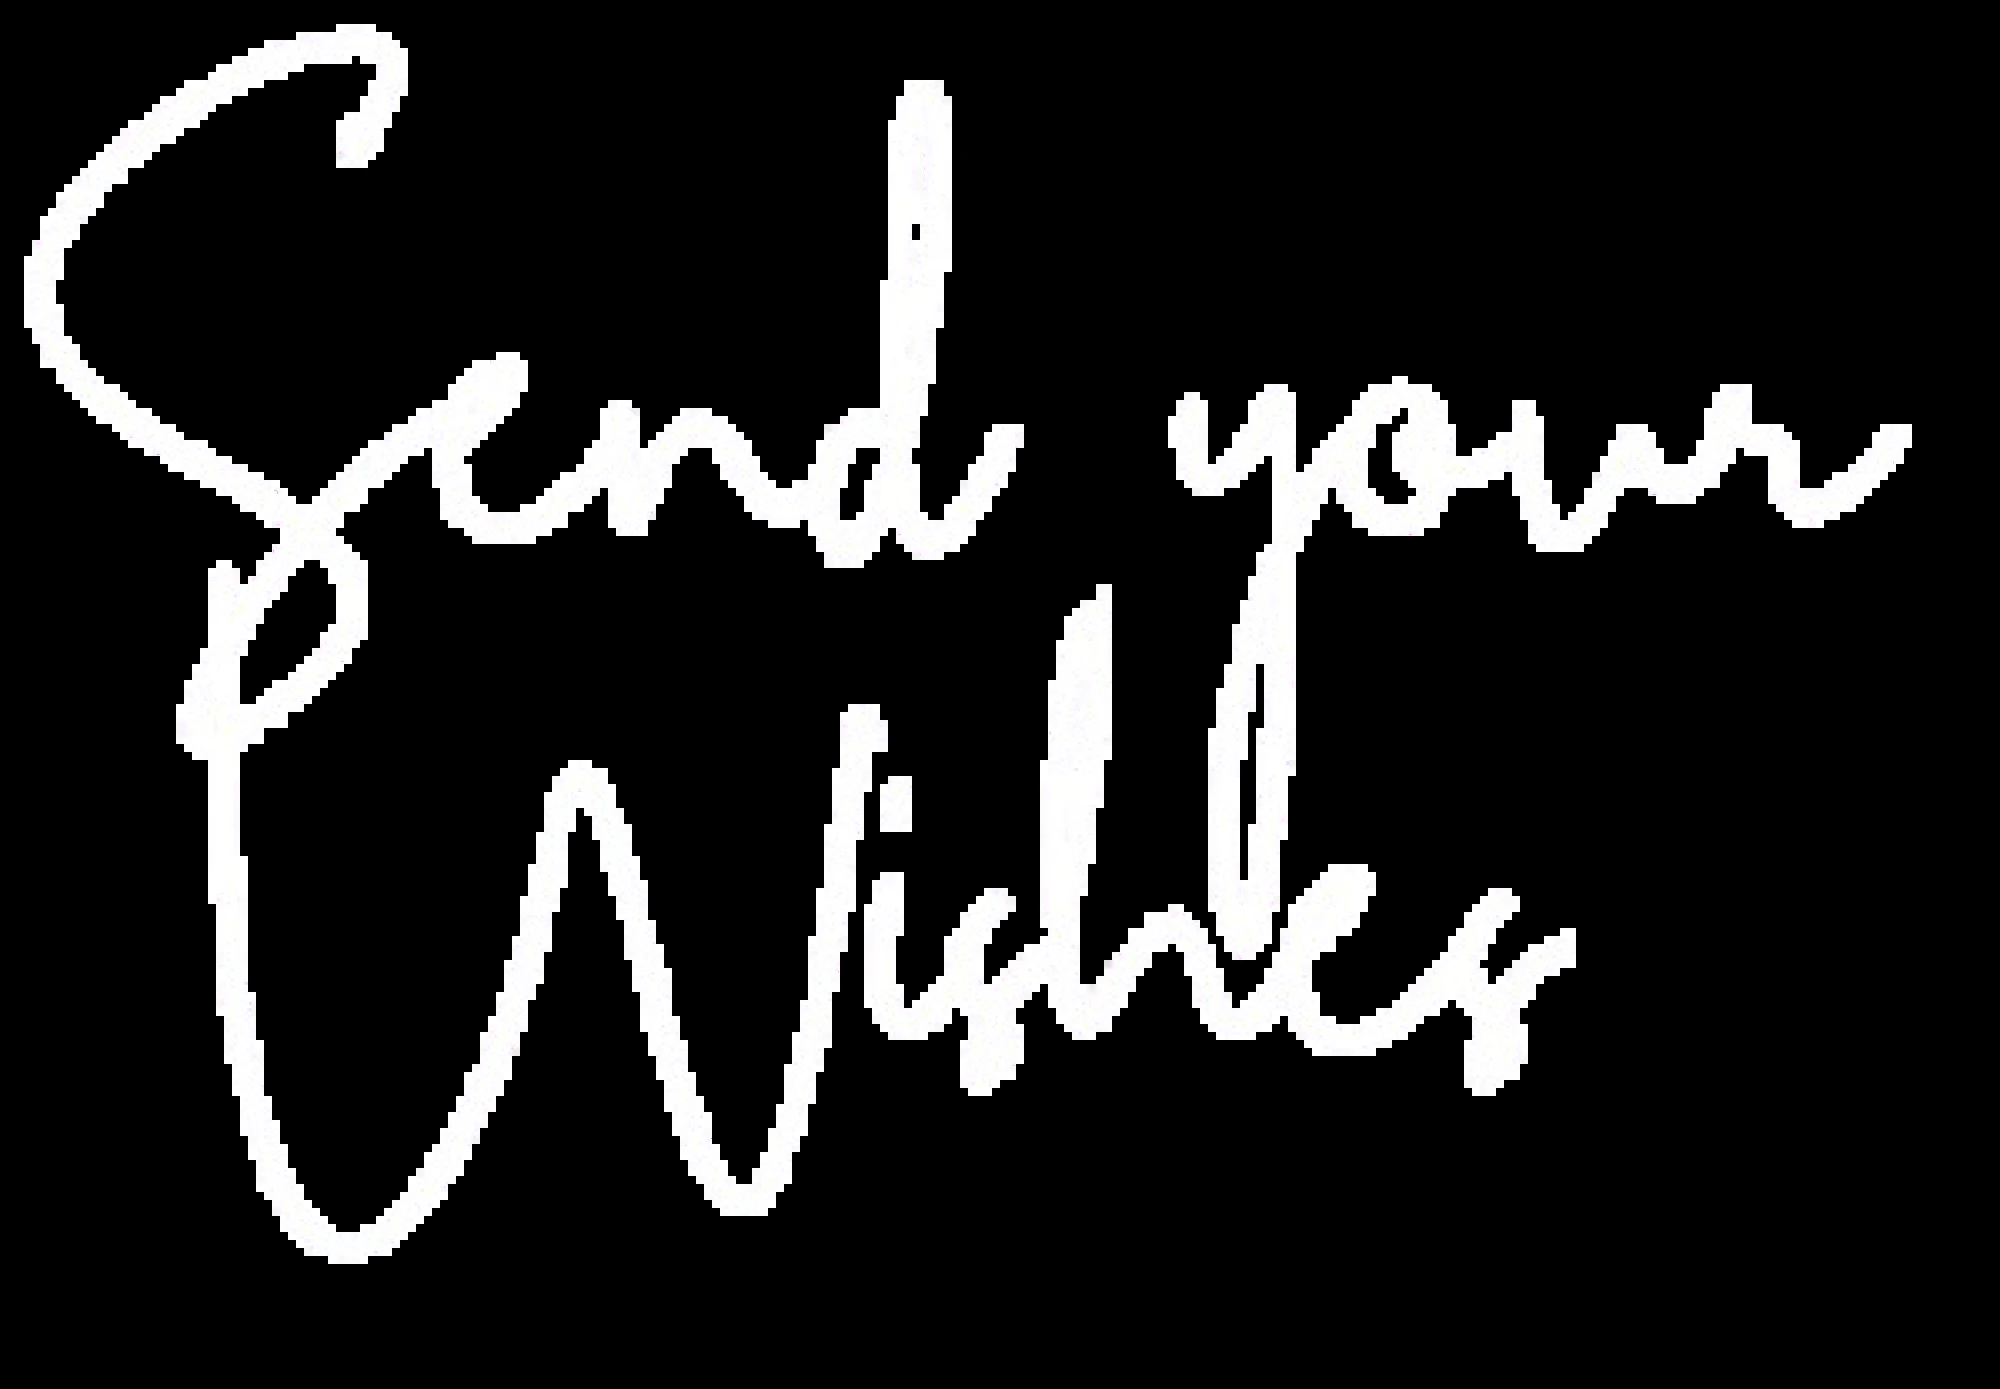 Send your
Wishes